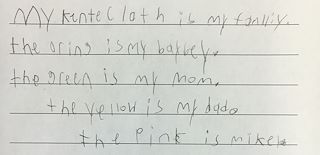 My kente Cloth is my family.
the oring is my baybey.
the green is my mom.
the yellow is my dad.
the Pink is mike.